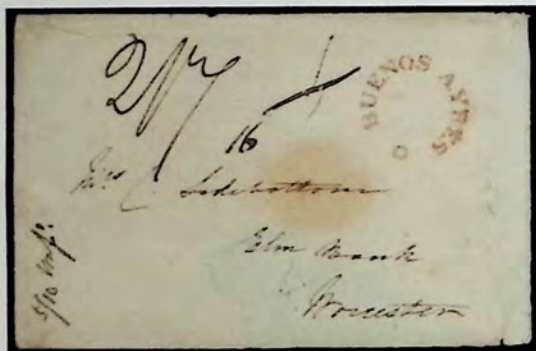 2/7
BUENOS AYRES
16
C Sidebottom
Elm Bank
Worcester